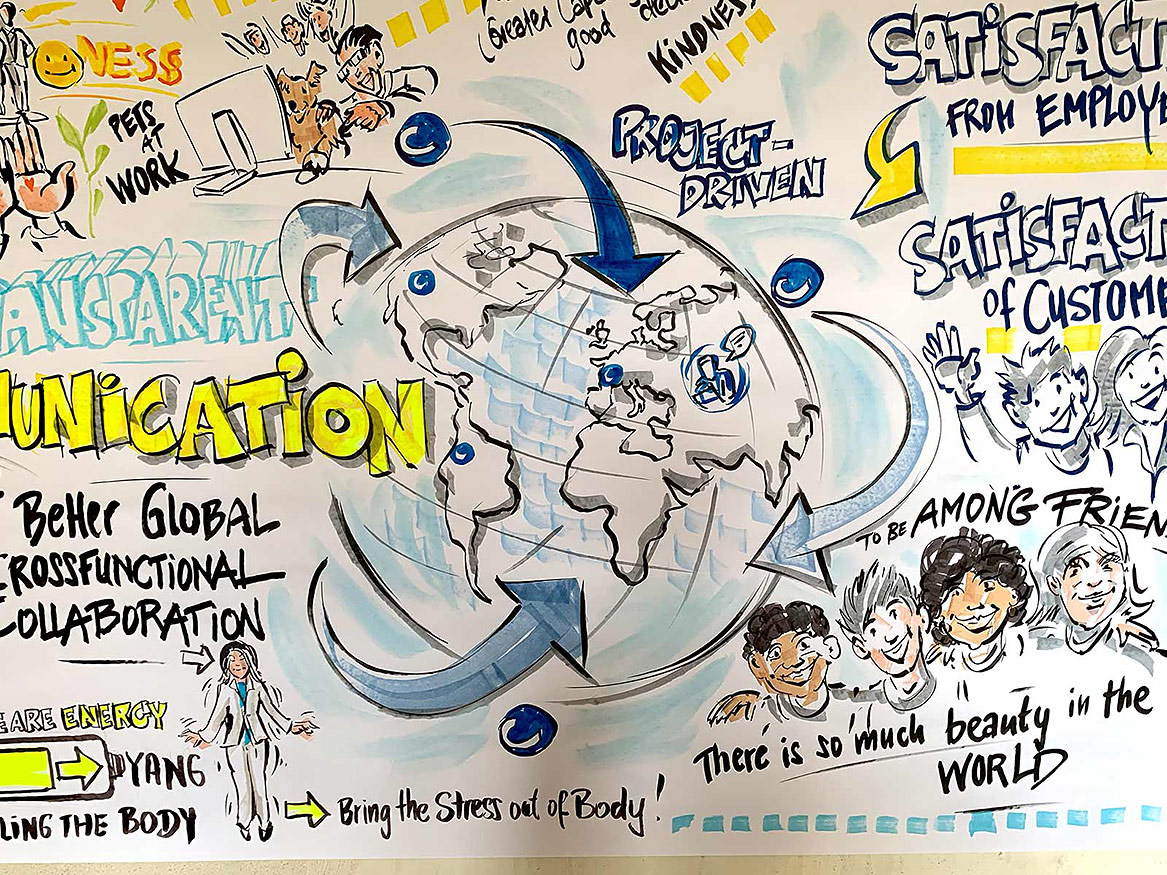 NESS
PETS
AT
WORK
(Greater
good
KINDNESS
PROJECT-
DRIVEN
SATISFACT
FROM EMPLOYE
SATISFACT
of CUSTOME
ANSPARENT
UNICATION
Better GLOBAL
CROSSFUNCTIONAL
COLLABORATION
TO BE AMONG FRIEN
There is so much beauty in the
WORLD
E ARE ENERGY
YANG
LING THE BODY
Bring the Stress out of Body!